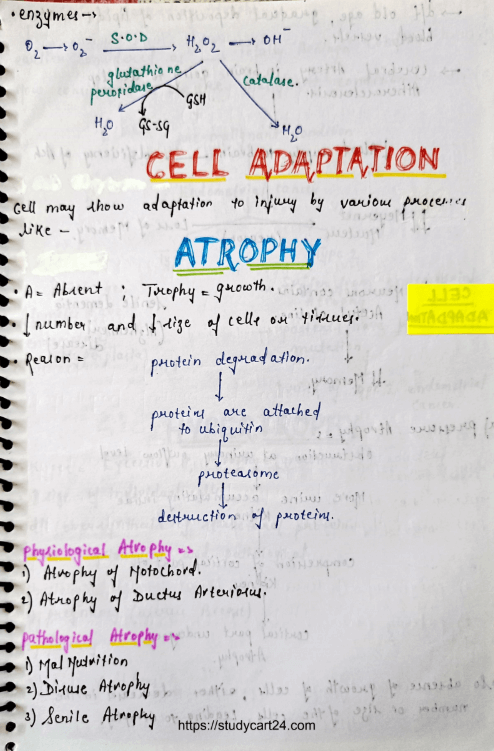 • enzymes →
O₂ → O₂⁻ S.O.D → H₂O₂ → OH⁻
glutathione peroxidase
catalase.
GSH
H₂O GS-SG H₂O
CELL ADAPTATION
Cell may show adaptation to injury by various processes
like –
ATROPHY
• A = Absent ; Trophy = growth.
• ↓ number and ↓ size of cells or tissues.
CELL
ADAPTATION
• Reason =
protein degradation.
↓
proteins are attached
to ubiquitin
↓
proteasome
↓
destruction of proteins.
Physiological Atrophy =>
1) Atrophy of Notochord.
2) Atrophy of Ductus Arteriosus.
Pathological Atrophy =>
1) Mal Nutrition
2) Disuse Atrophy
3) Senile Atrophy
https://studycart24.com